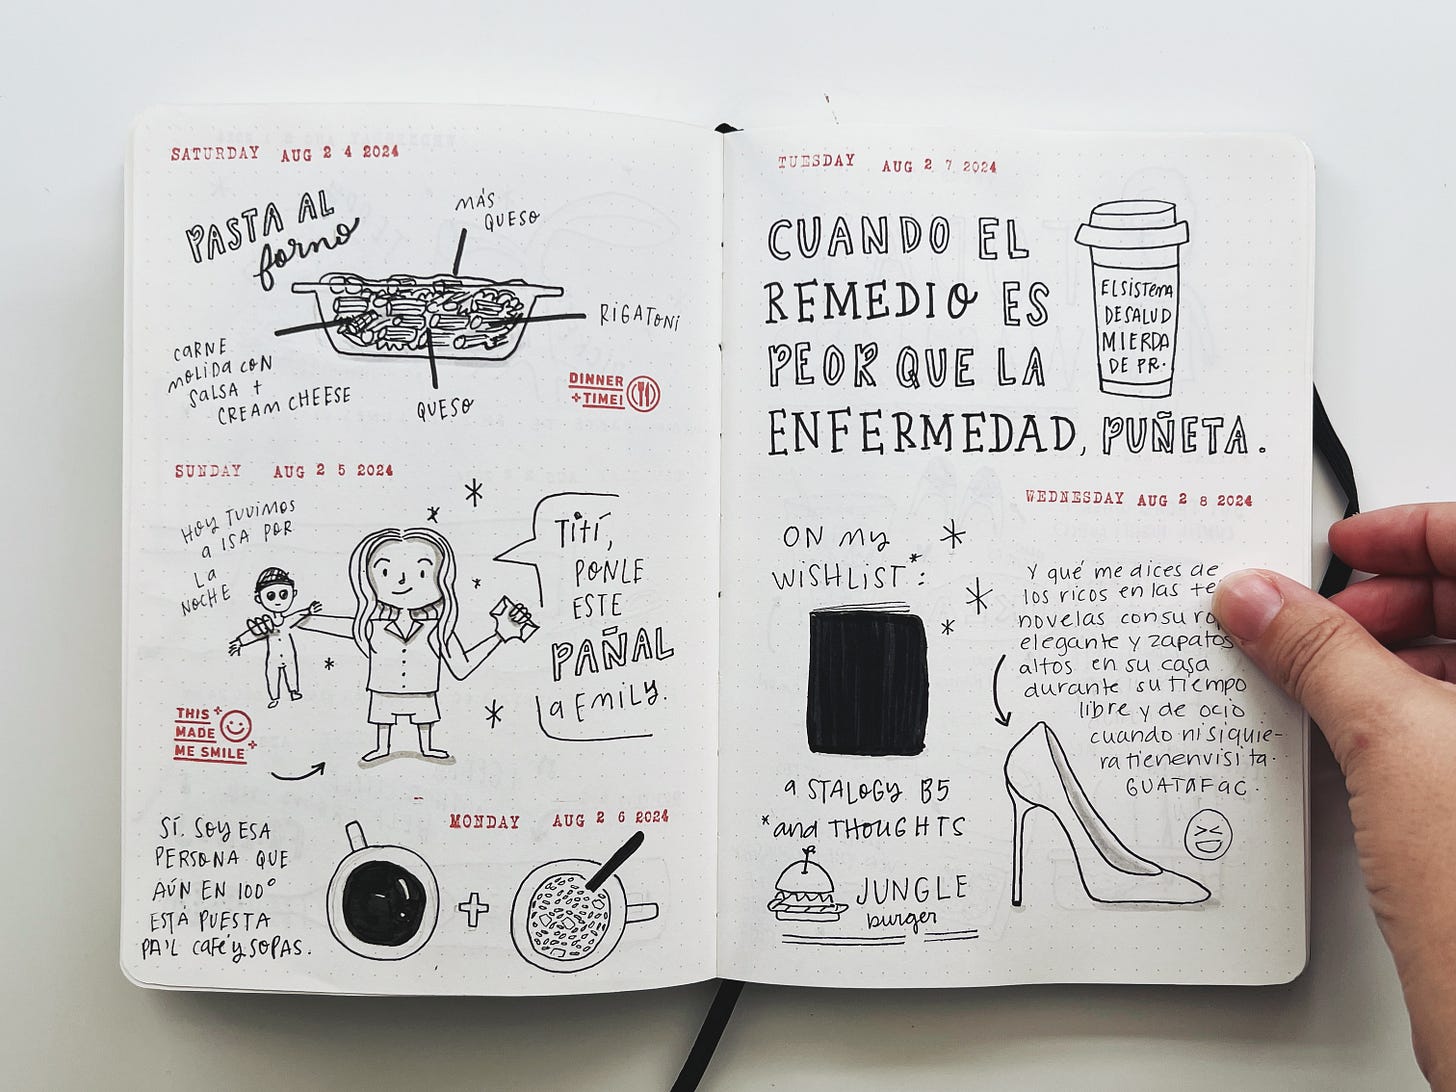 SATURDAY AUG 2 4 2024
PASTA AL
forno
MÁS
QUESO
RIGATONI
CARNE
MOLIDA CON
SALSA +
CREAM CHEESE
QUESO
DINNER
+TIME!
SUNDAY AUG 2 5 2024
HOY TUVIMOS
a ISA POR
LA
NOCHE
TITÍ,
PONLE
ESTE
PAÑAL
a EMILY.
THIS
MADE
ME SMILE
MONDAY AUG 2 6 2024
SÍ. SOY ESA
PERSONA QUE
AÚN EN 100°
ESTÁ PUESTA
PA'L CAFÉ Y SOPAS.
TUESDAY AUG 2 7 2024
CUANDO EL
REMEDIO ES
PEOR QUE LA
ENFERMEDAD, PUÑETA.
EL SISTEMA
DE SALUD
MIERDA
DE PR.
WEDNESDAY AUG 2 8 2024
ON MY
WISHLIST*:
a STALOGY B5
*and THOUGHTS
JUNGLE
burger
Y qué me dices de
los ricos en las te
novelas con su ro
elegante y zapatos
altos en su casa
durante su tiempo
libre y de ocio
cuando ni siquie-
ra tienen visita.
GUATAFAC.